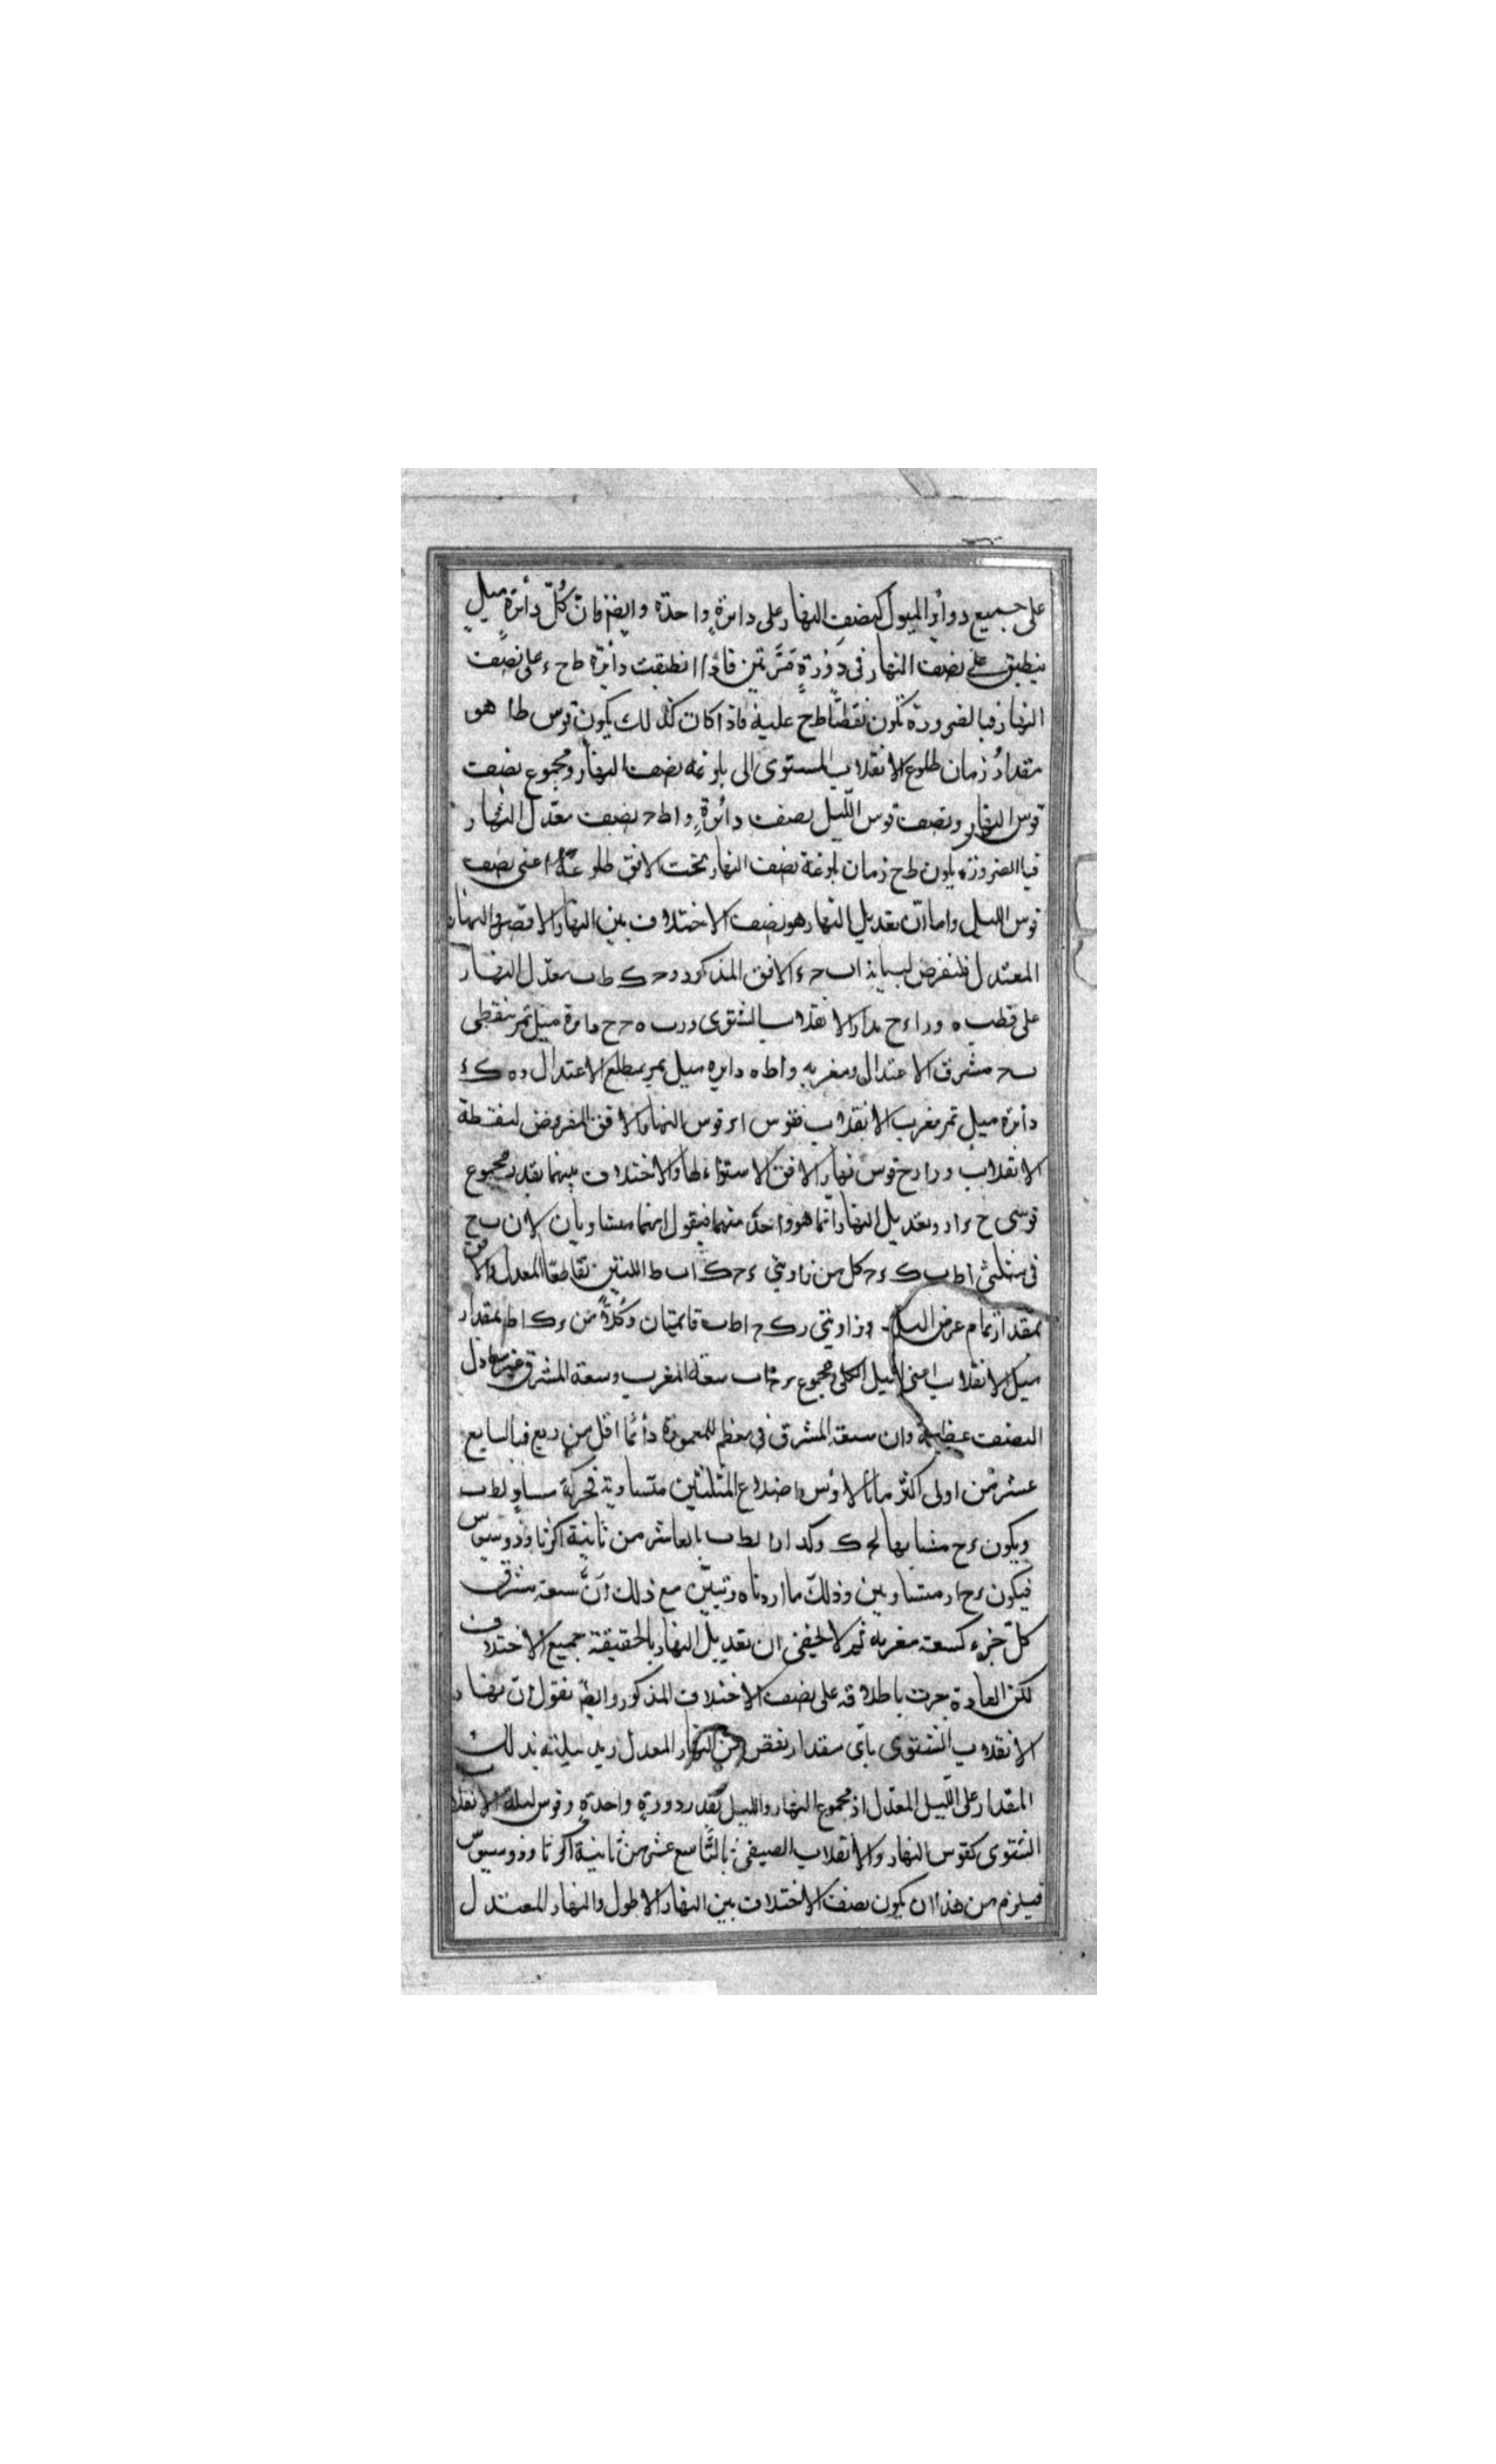 على جميع دوائر الميول كنصف النهار على دائرة واحدة وايضا فان كل دائرة ميل
ينطبق على نصف النهار فى دورة مرتين فاذا انطبقت دائرة ط ح ء على نصف
النهار فبالضرورة تكون نقطتا ط ح عليه فاذا كان كذلك يكون قوس ط ا هو
مقدار زمان طلوع الانقلاب المستوى الى بلوغه نصف النهار ومجموع نصف
قوس النهار ونصف قوس الليل نصف دائرة و ا ط ح نصف معدل النهار
فبالضرورة يكون ط ح زمان بلوغه نصف النهار تحت الافق طلوعه اعنى نصف
قوس الليل واما ان تعديل النهار هو نصف الاختلاف بين النهار الاقصر والنهار
المعتدل فلنفرض لبيانه ا ب ح ء الافق المذكور و ح ك ط ب معدل النهار
على قطب ه و ر ا ء ح مدار الانقلاب الشتوى و ر ب ه ح ح دائرة ميل تمر بنقطتى
ب ح مشرق الاعتدال ومغربه و ا ط ه دائرة ميل يمر بمطلع الاعتدال و ه ك ء
دائرة ميل تمر بمغرب الانقلاب فقوس ا ء قوس النهار والافق المفروض لنقطة
الانقلاب و ر ا ء ح قوس نهار الافق الاستواء لها والاختلاف بينهما بقدر مجموع
قوسى ح ء ا ر وتعديل النهار انما هو واحد منهما فيقول انهما متساويان لان ب ح
فى مثلثى ا ط ب ك ء ح كل من زاويتى ء ح ك ا ب ط اللتين تقاطعا المعدل والافق
بمقدار تمام عرض البلد وزاويتى ء ك ح ا ط ب قائمتان وكلا من ء ك ا ط بمقدار
ميل الانقلاب اعنى الميل الكلى ومجموع ء ح ا ب سعة المغرب وسعة المشرق غير معادل
النصف عظيمة وان سعة المشرق فى معظم المعمورة دائما اقل من ربع فبالسابع
عشر من اولى اكثر مانالاوس اضلاع المثلثين متساوية فح ك مساو لط ب
ويكون ء ح مشابها لح ك وكذا ا ر لط ب بالعاشر من ثانية اكر ثاوذوسيوس
فيكون ء ح ا ر متساويين وذلك ما اردناه وتبين مع ذلك ان سعة مشرق
كل جزء كسعة مغربه ثم لا يخفى ان تعديل النهار بالحقيقة جميع الاختلاف
لكن العادة جرت باطلاقه على نصف الاختلاف المذكور وايضا نقول ان نهار
الانقلاب الشتوى باى مقدار نقص من النهار المعدل زيد ليلته بذلك
المقدار على الليل المعدل اذ مجموع النهار والليل بقدر دورة واحدة وقوس ليلة الانقلاب
الشتوى كقوس النهار والانقلاب الصيفى بالتاسع عشر من ثانية اكر ثاوذوسيوس
فيلزم من هذا ان يكون نصف الاختلاف بين النهار الاطول والنهار المعتدل